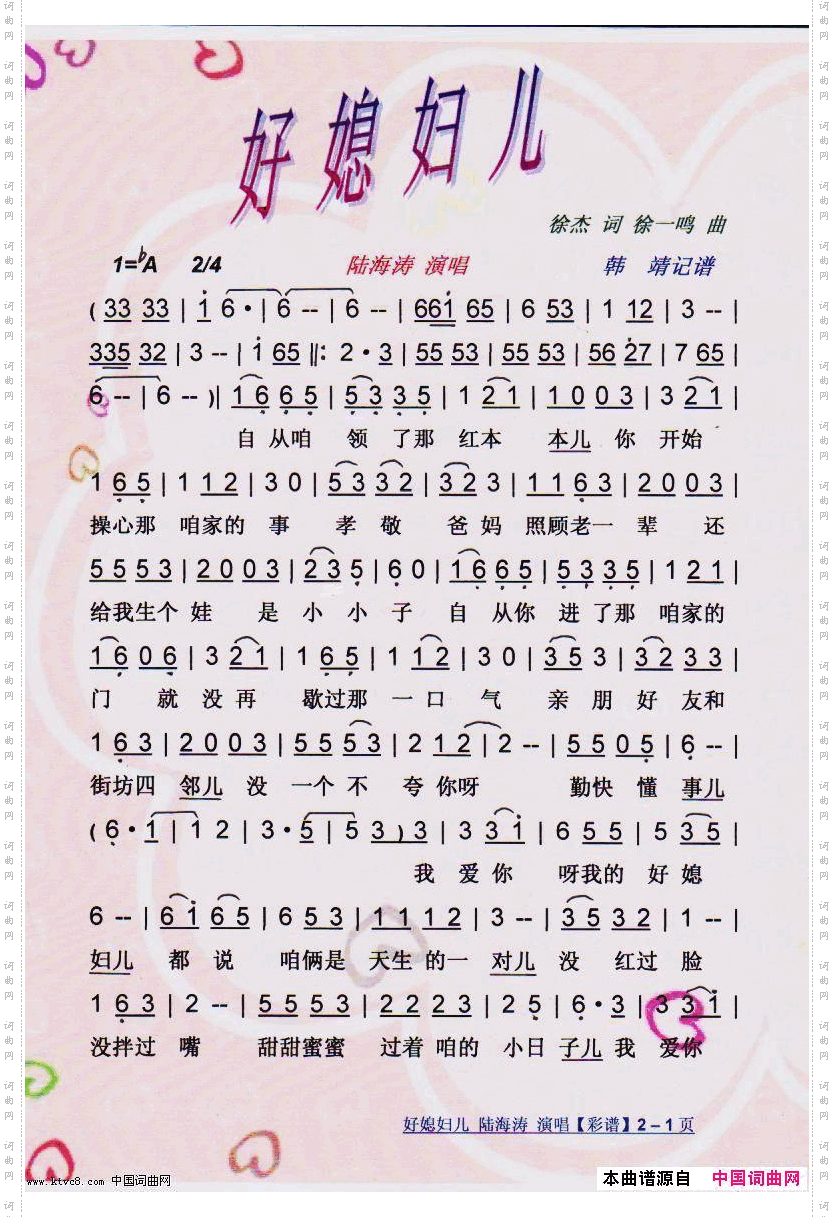 好媳妇儿
徐杰 词 徐一鸣 曲
1=♭A 2/4 陆海涛 演唱 韩 靖记谱
( 33 33 | i 6· | 6 -- | 6 -- | 66i 65 | 6 53 | 1 12 | 3 -- |
335 32 | 3 -- | i 65 ‖: 2 · 3 | 55 53 | 55 53 | 56 27 | 7 65 |
6 -- | 6 -- )| 1 6 6 5 | 5 3 3 5 | 1 2 1 | 1 0 0 3 | 3 2 1 |
自 从咱 领 了那 红本 本儿 你 开始
1 6 5 | 1 1 2 | 3 0 | 5 3 3 2 | 3 2 3 | 1 1 6 3 | 2 0 0 3 |
操心那 咱家的 事 孝 敬 爸 妈 照顾老一 辈 还
5 5 5 3 | 2 0 0 3 | 2 3 5 | 6 0 | 1 6 6 5 | 5 3 3 5 | 1 2 1 |
给我生个 娃 是 小 小 子 自 从你 进 了那 咱家的
1 6 0 6 | 3 2 1 | 1 6 5 | 1 1 2 | 3 0 | 3 5 3 | 3 2 3 3 |
门 就 没 再 歇过那 一 口 气 亲 朋 好 友和
1 6 3 | 2 0 0 3 | 5 5 5 3 | 2 1 2 | 2 -- | 5 5 0 5 | 6 -- |
街坊四 邻儿 没 一个 不 夸 你呀 勤快 懂 事儿
( 6 · 1 | 1 2 | 3 · 5 | 5 3 ) 3 | 3 3 i | 6 5 5 | 5 3 5 |
我 爱 你 呀我的 好 媳
6 -- | 6 i 6 5 | 6 5 3 | 1 1 1 2 | 3 -- | 3 5 3 2 | 1 -- |
妇儿 都 说 咱俩是 天生 的一 对儿 没 红过 脸
1 6 3 | 2 -- | 5 5 5 3 | 2 2 2 3 | 2 5 | 6 · 3 | 3 3 i |
没拌过 嘴 甜甜蜜蜜 过着 咱的 小日 子儿 我 爱你
好媳妇儿 陆海涛 演唱【彩谱】2－1页
www.ktvc8.com 中国词曲网
本曲谱源自 中国词曲网